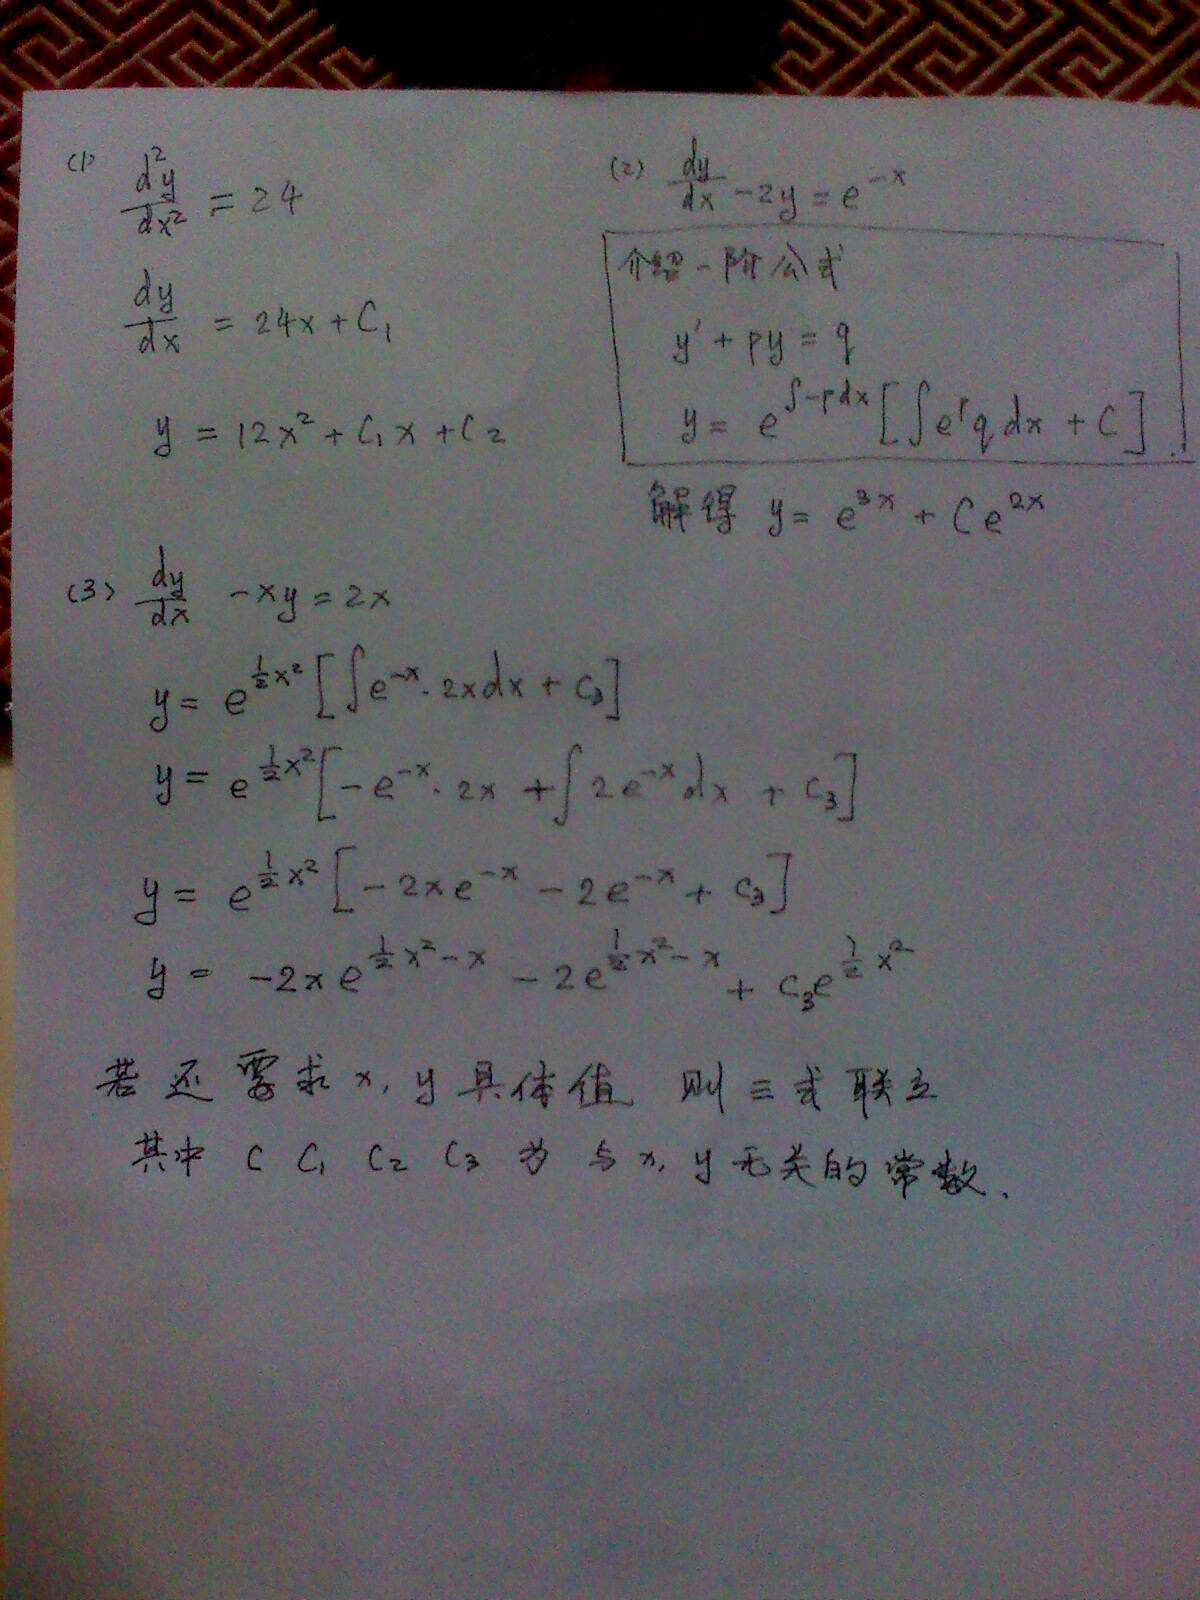 (1) d²y/dx² = 24
dy/dx = 24x + C₁
y = 12x² + C₁x + C₂
(2) dy/dx - 2y = e^{-x}
介绍一阶公式
y' + py = q
y = e^{∫-pdx} [∫e^p q dx + C]
解得 y = e^{3x} + Ce^{2x}
(3) dy/dx - xy = 2x
y = e^{½x²} [∫e^{-x}·2xdx + C₃]
y = e^{½x²} [-e^{-x}·2x + ∫2e^{-x}dx + C₃]
y = e^{½x²} [-2xe^{-x} - 2e^{-x} + C₃]
y = -2xe^{½x²-x} - 2e^{½x²-x} + C₃e^{½x²}
若还要求 x, y 具体值 则三式联立
其中 C C₁ C₂ C₃ 为与 x, y 无关的常数.